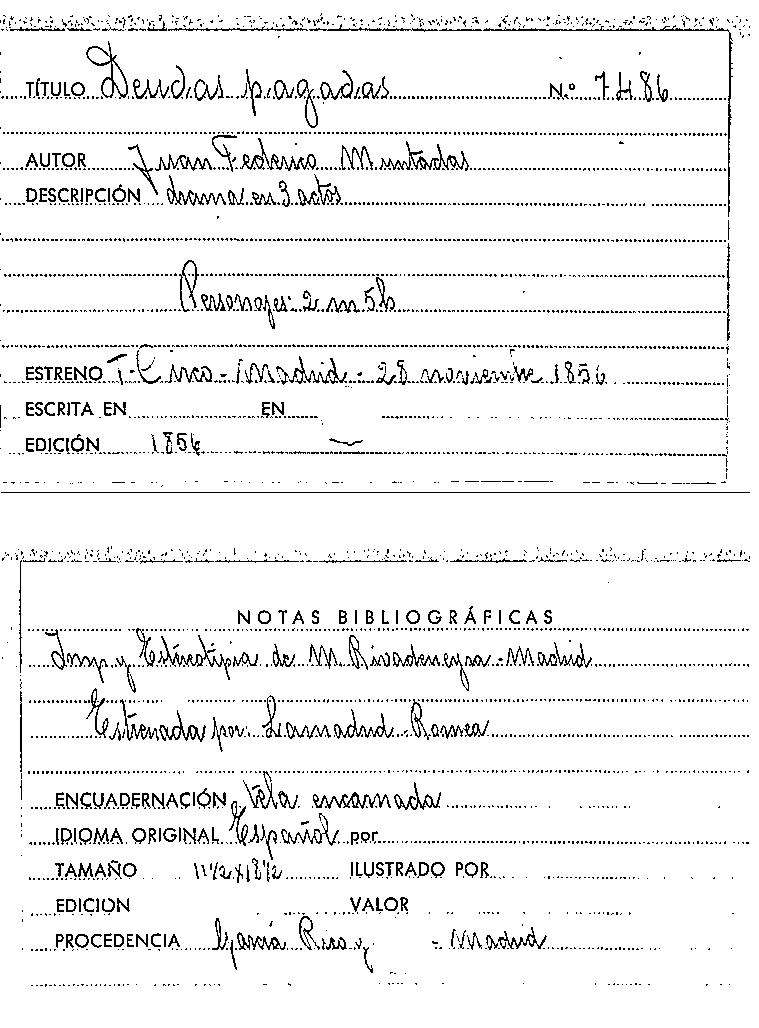 TÍTULO Deudas pagadas N.º 7486
AUTOR Juan Federico Muntadas
DESCRIPCIÓN drama en 3 actos
Personajes: 2 m 5 h
ESTRENO T. Circo - Madrid - 28 noviembre 1856
ESCRITA EN EN
EDICIÓN 1856
NOTAS BIBLIOGRÁFICAS
Imp. y Estereotipia de M. Rivadeneyra - Madrid
Estrenada por: Lamadrid - Romea
ENCUADERNACIÓN tela encarnada
IDIOMA ORIGINAL Español por
TAMAÑO 11 1/2 x 18 1/2 ILUSTRADO POR
EDICION VALOR
PROCEDENCIA García Rico y - Madrid